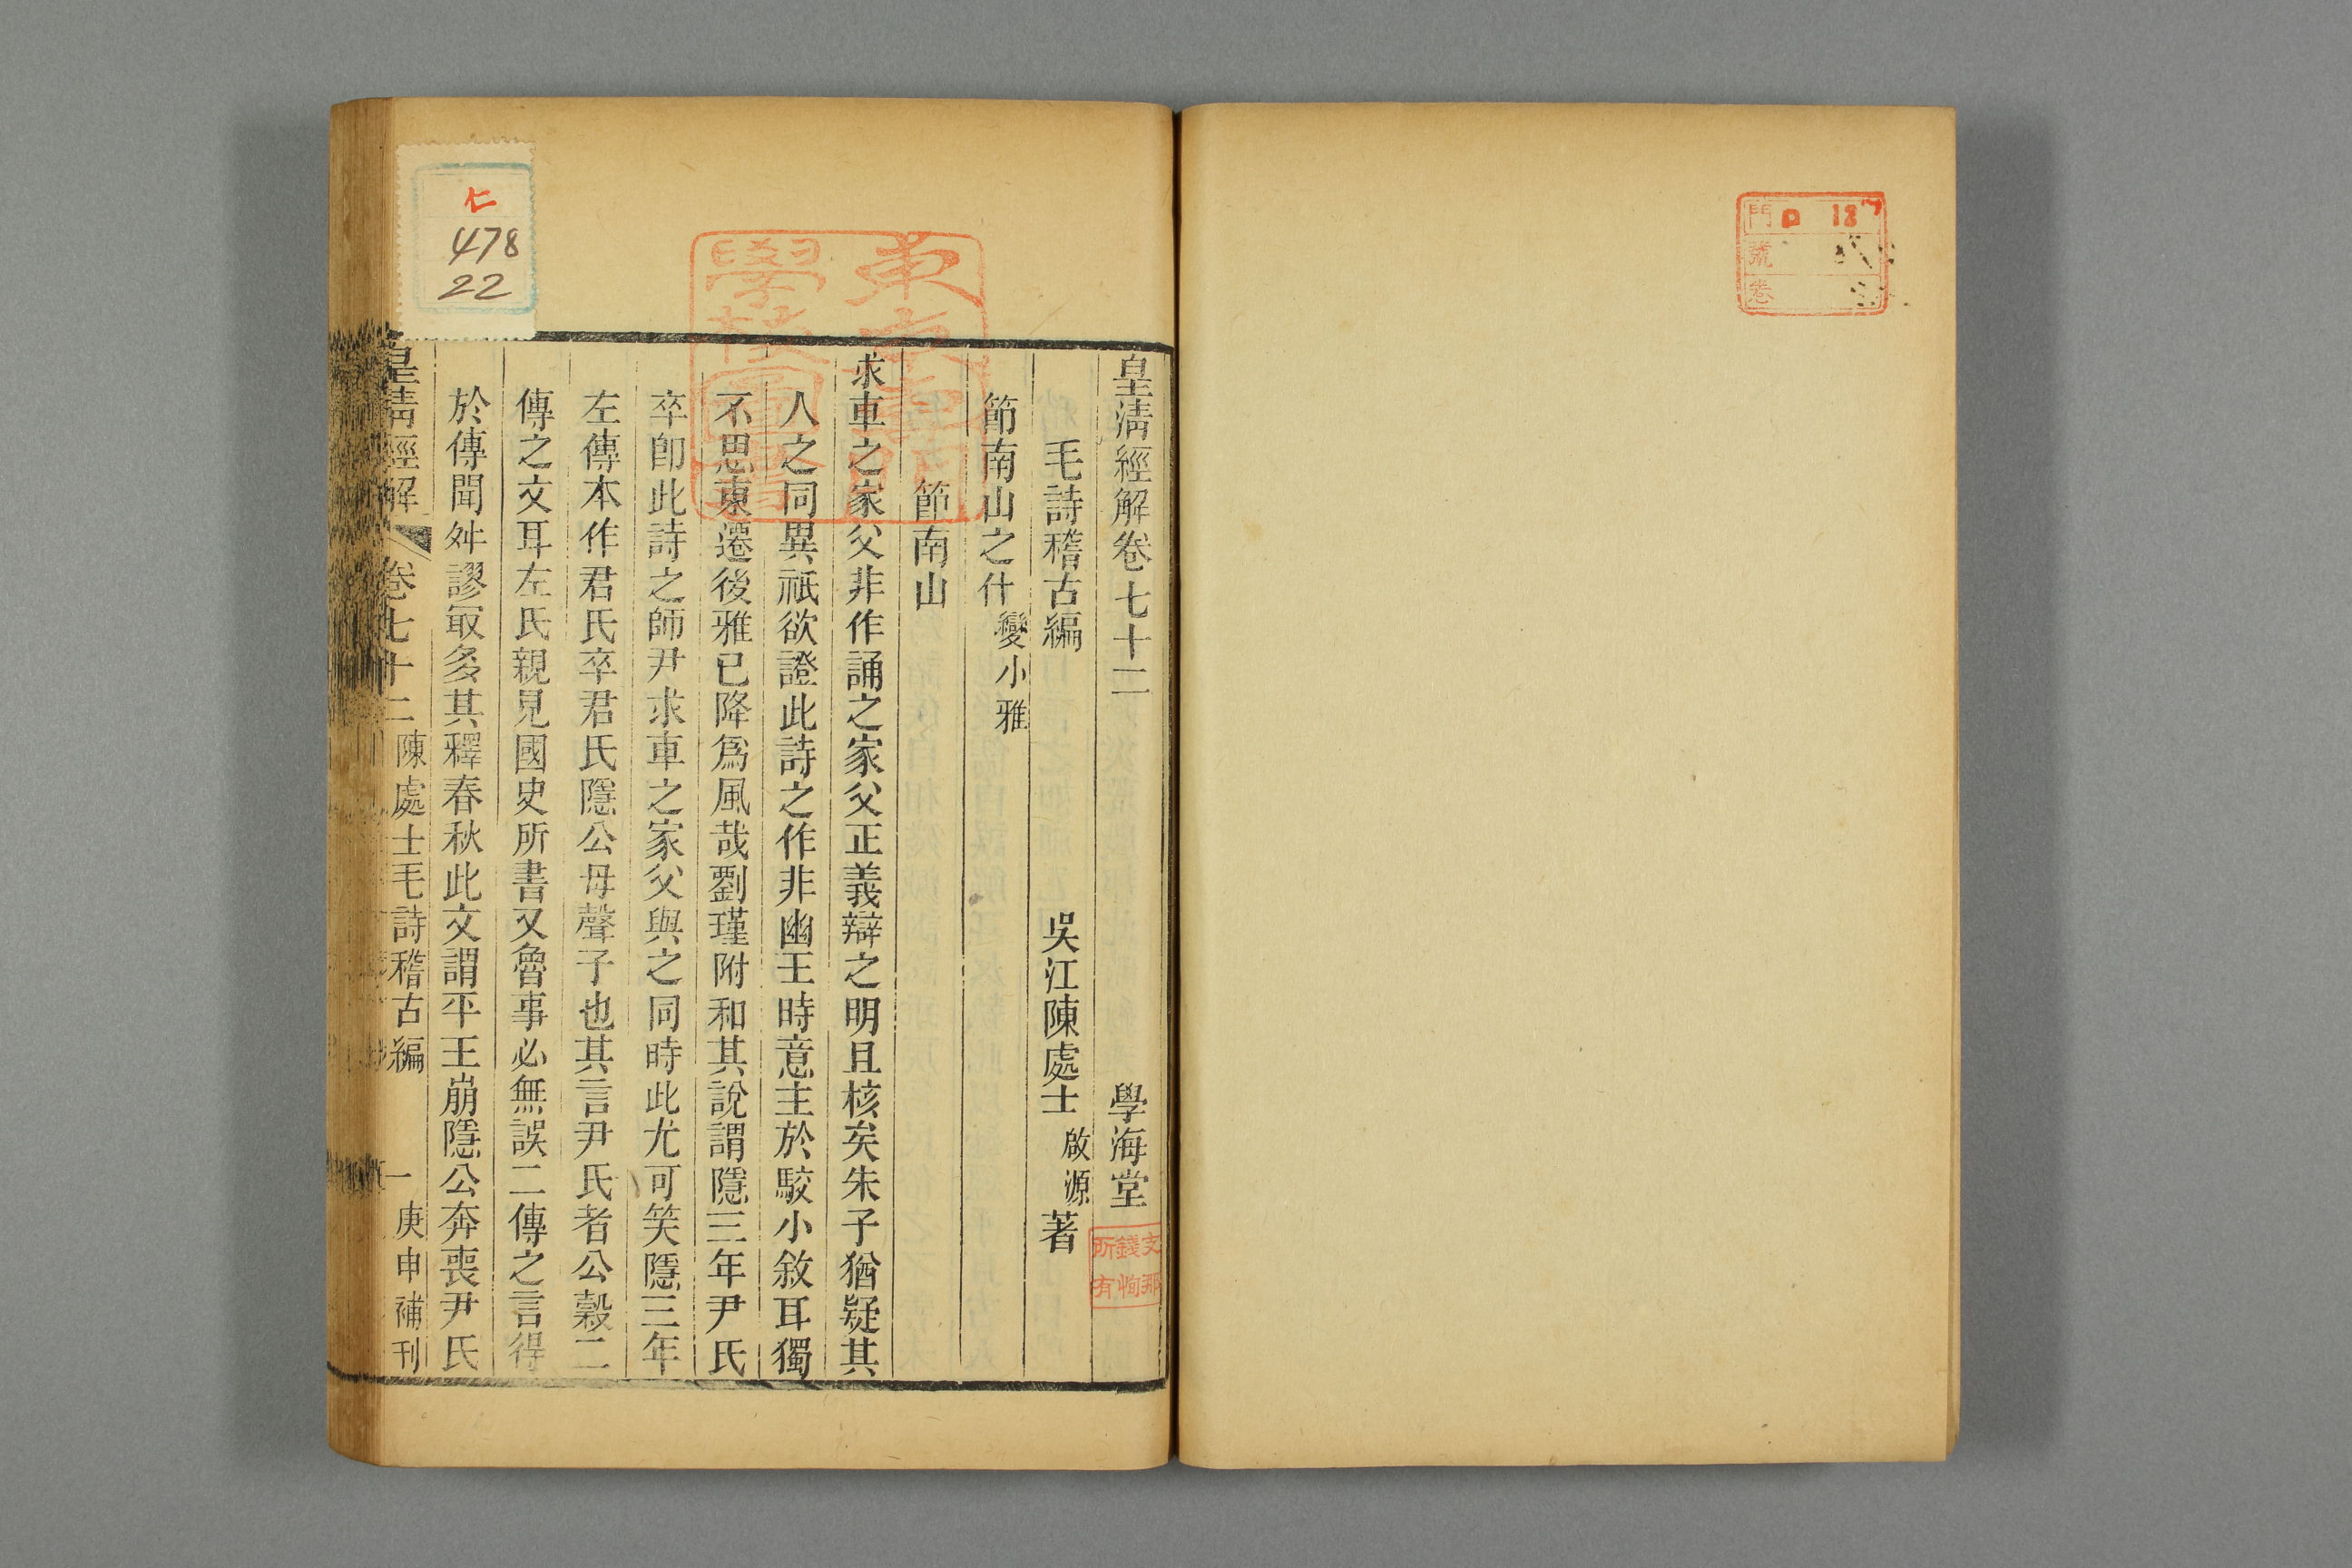 門 ロ 187
號
卷
皇清經解卷七十二 學海堂
毛詩稽古編 吳江陳處士啟源著
節南山之什變小雅
節南山
求車之家父非作誦之家父正義辯之明且核矣朱子猶疑其
人之同異祇欲證此詩之作非幽王時意主於駮小敘耳獨
不思東遷後雅已降爲風哉劉瑾附和其說謂隱三年尹氏
卒卽此詩之師尹求車之家父與之同時此尤可笑隱三年
左傳本作君氏卒君氏隱公母聲子也其言尹氏者公穀二
傳之文耳左氏親見國史所書又魯事必無誤二傳之言得
於傳聞舛謬寂多其釋春秋此文謂平王崩隱公奔喪尹氏
皇清經解 卷七十二 陳處士毛詩稽古編 一 庚申補刊
支那
錢恂
所有
東京專門
學校圖書
仁
478
22